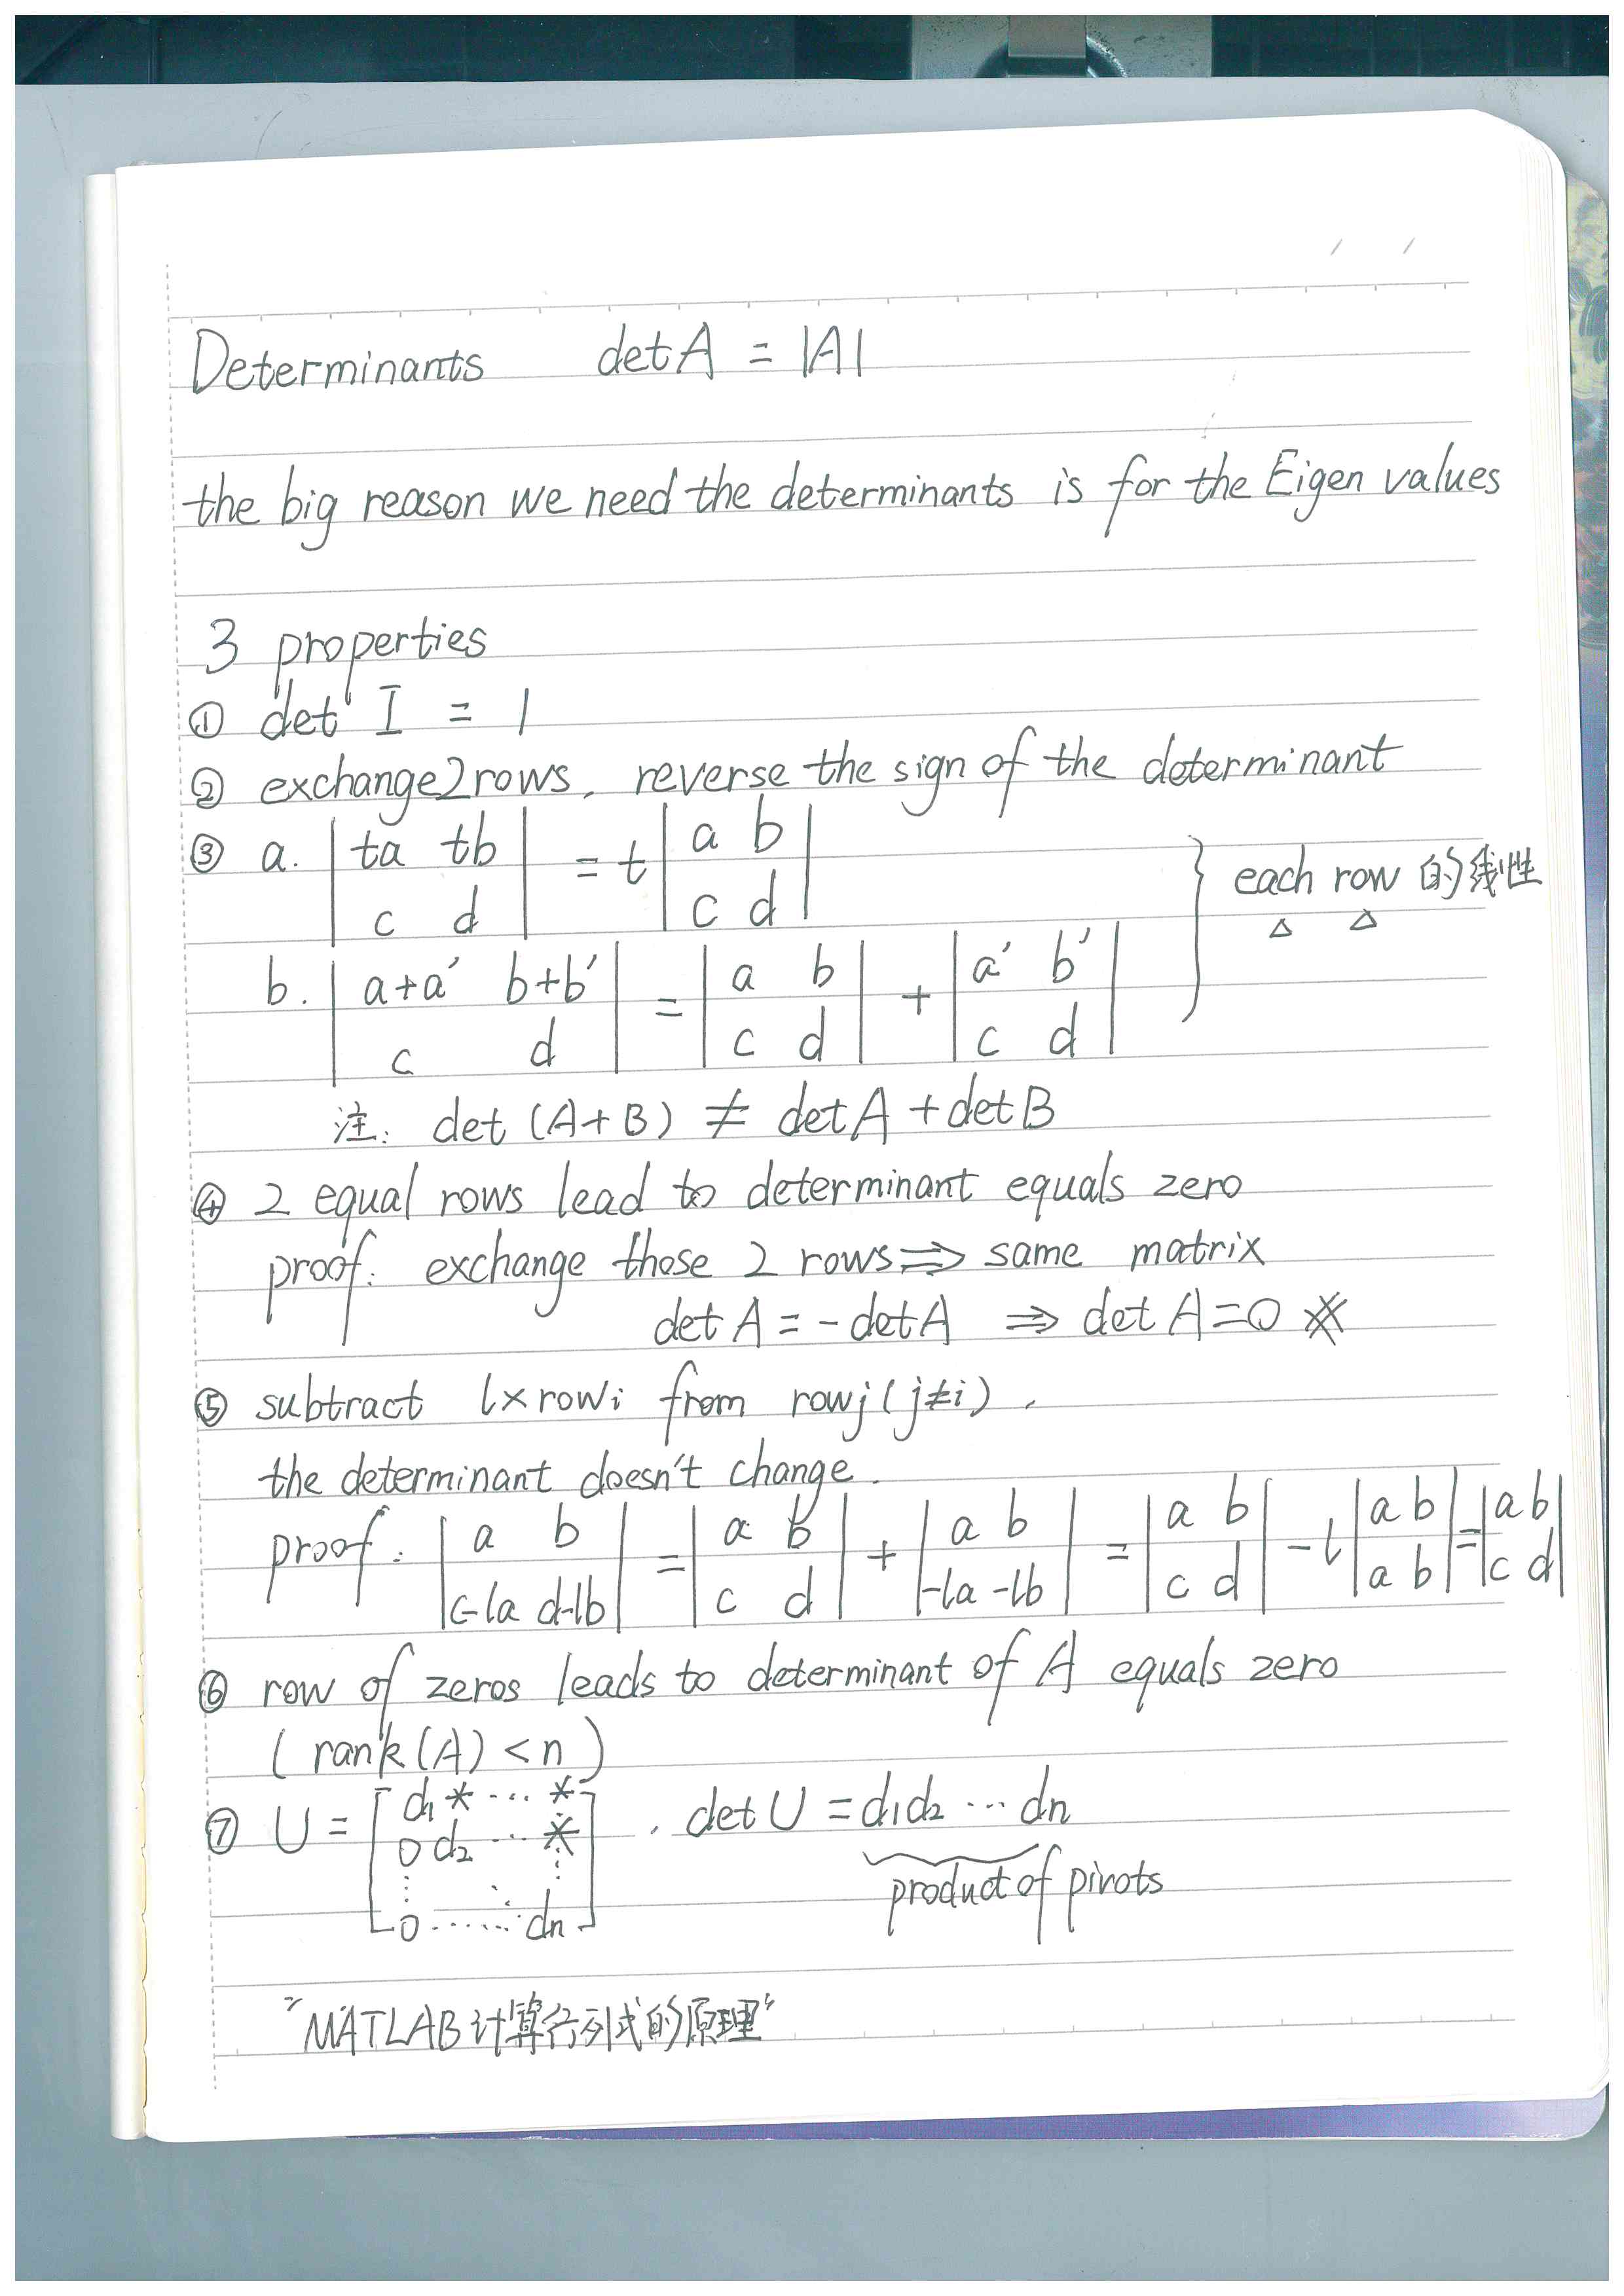 Determinants det A = |A|
the big reason we need the determinants is for the Eigen values
3 properties
① det I = 1
② exchange 2 rows, reverse the sign of the determinant
③ a. | ta tb ; c d | = t | a b ; c d |
b. | a+a′ b+b′ ; c d | = | a b ; c d | + | a′ b′ ; c d |
} each row 的线性
△ △
注: det (A+B) ≠ det A + det B
④ 2 equal rows lead to determinant equals zero
proof: exchange those 2 rows ⇒ same matrix
det A = - det A ⇒ det A = 0 ※
⑤ subtract l × row i from row j (j≠i),
the determinant doesn't change.
proof: | a b ; c-la d-lb | = | a b ; c d | + | a b ; -la -lb | = | a b ; c d | - l | a b ; a b | = | a b ; c d |
⑥ row of zeros leads to determinant of A equals zero
( rank(A) < n )
⑦ U = [ d₁ * ⋯ * ; 0 d₂ ⋯ * ; ⋮ ⋱ ⋮ ; 0 ⋯⋯ dn ] , det U = d₁d₂ ⋯ dn
product of pivots
"MATLAB计算行列式的原理"